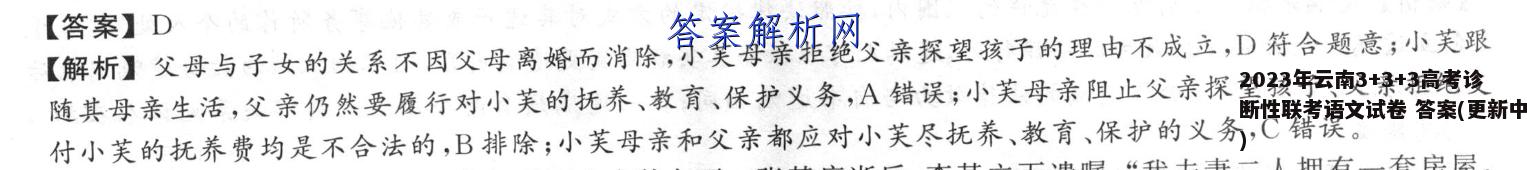 【答案】D
答案解析网
【解析】父母与子女的关系不因父母离婚而消除,小芙母亲拒绝父亲探望孩子的理由不成立,D 符合题意;小芙跟
随其母亲生活,父亲仍然要履行对小芙的抚养、教育、保护义务,A 错误;小芙母亲阻止父亲探
2023年云南3+3+3高考诊
断性联考语文试卷 答案(更新中
)
付小芙的抚养费均是不合法的,B 排除;小芙母亲和父亲都应对小芙尽抚养、教育、保护的义务,C 错误。